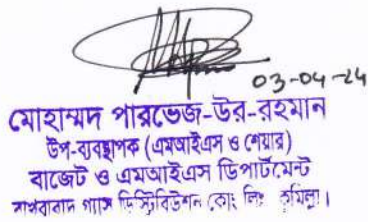 03-04-24
মোহাম্মদ পারভেজ-উর-রহমান
উপ-ব্যবস্থাপক (এমআইএস ও শেয়ার)
বাজেট ও এমআইএস ডিপার্টমেন্ট
বাখরাবাদ গ্যাস ডিস্ট্রিবিউশন কোং লিঃ কুমিল্লা।